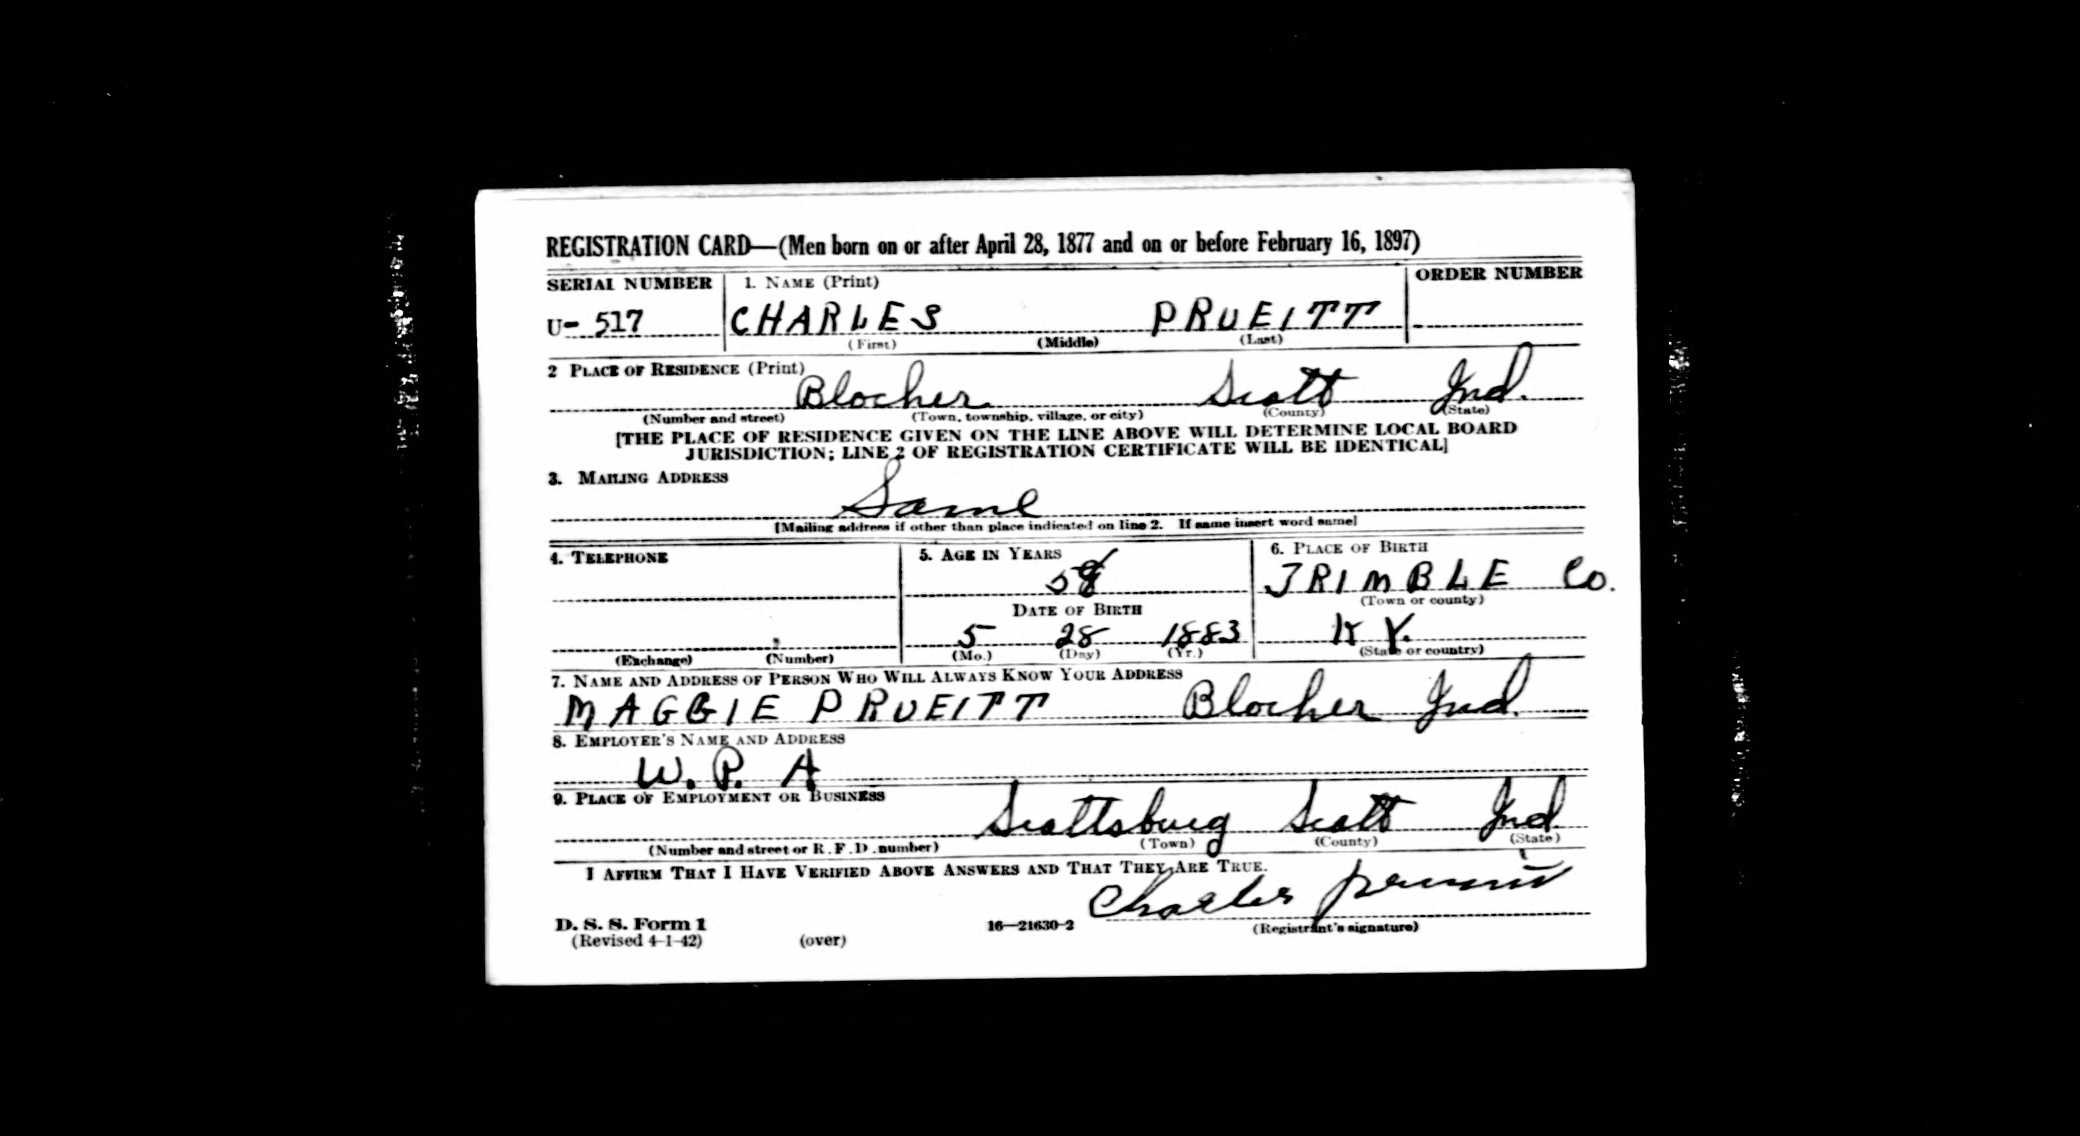 REGISTRATION CARD—(Men born on or after April 28, 1877 and on or before February 16, 1897)
SERIAL NUMBER 1. NAME (Print) ORDER NUMBER
U- 517 CHARLES PRUEITT
(First) (Middle) (Last)
2 PLACE OF RESIDENCE (Print)
Blocher Scott Ind.
(Number and street) (Town, township, village, or city) (County) (State)
[THE PLACE OF RESIDENCE GIVEN ON THE LINE ABOVE WILL DETERMINE LOCAL BOARD
JURISDICTION; LINE 2 OF REGISTRATION CERTIFICATE WILL BE IDENTICAL]
3. MAILING ADDRESS
Same
[Mailing address if other than place indicated on line 2. If same insert word same]
4. TELEPHONE 5. AGE IN YEARS 6. PLACE OF BIRTH
58 TRIMBLE Co.
DATE OF BIRTH (Town or county)
5 28 1883 KY.
(Exchange) (Number) (Mo.) (Day) (Yr.) (State or country)
7. NAME AND ADDRESS OF PERSON WHO WILL ALWAYS KNOW YOUR ADDRESS
MAGGIE PRUEITT Blocher Ind.
8. EMPLOYER'S NAME AND ADDRESS
W. P. A
9. PLACE OF EMPLOYMENT OR BUSINESS
Scottsburg Scott Ind
(Number and street or R. F. D. number) (Town) (County) (State)
I AFFIRM THAT I HAVE VERIFIED ABOVE ANSWERS AND THAT THEY ARE TRUE.
Charles
D. S. S. Form 1 16—21630-2 (Registrant's signature)
(Revised 4-1-42) (over)